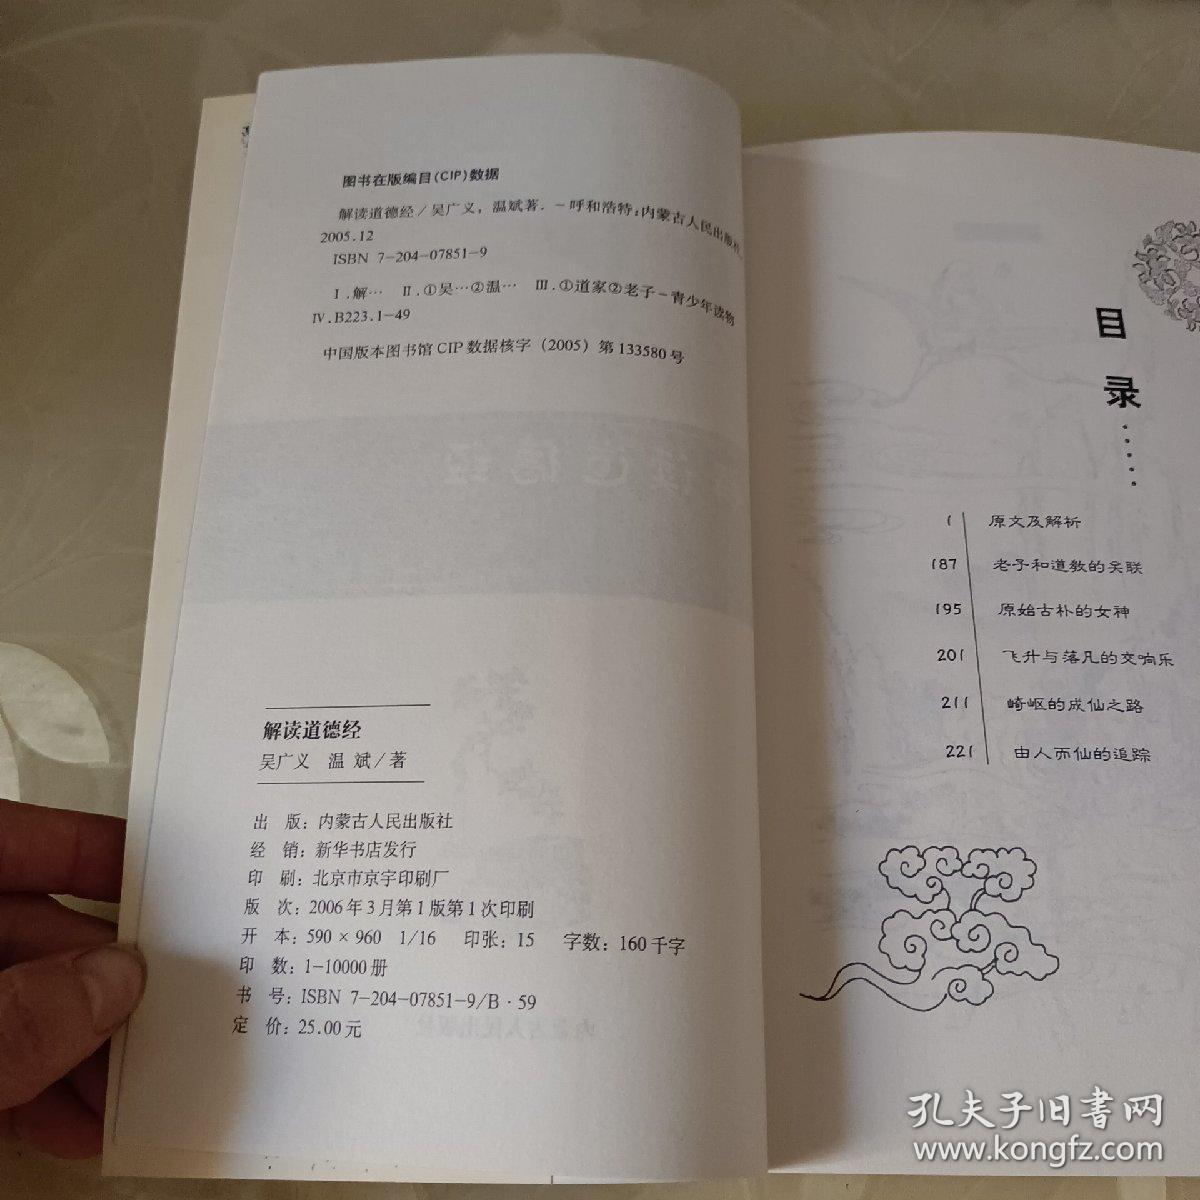 图书在版编目(CIP)数据
解读道德经/吴广义，温斌著.－呼和浩特:内蒙古人民出版社,
2005.12
ISBN 7-204-07851-9
Ⅰ.解… Ⅱ.①吴…②温… Ⅲ.①道家②老子－青少年读物
Ⅳ.B223.1-49
中国版本图书馆CIP数据核字（2005）第133580号
解读道德经
吴广义 温 斌/著
出 版：内蒙古人民出版社
经 销：新华书店发行
印 刷：北京市京宇印刷厂
版 次：2006年3月第1版第1次印刷
开 本：590×960 1/16 印张：15 字数：160千字
印 数：1-10000册
书 号：ISBN 7-204-07851-9/B·59
定 价：25.00元
目录……
1 原文及解析
187 老子和道教的关联
195 原始古朴的女神
201 飞升与落凡的交响乐
211 崎岖的成仙之路
221 由人而仙的追踪
孔夫子旧书网
www.kongfz.com